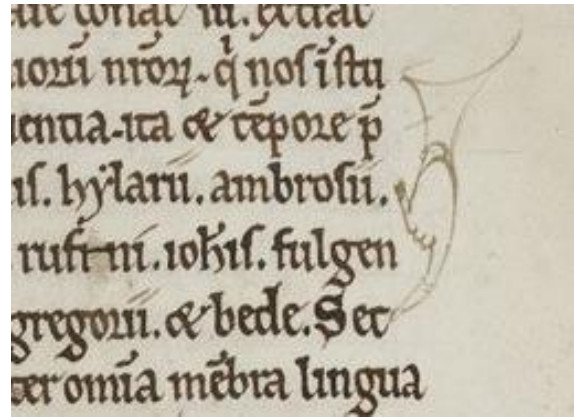 conat̄ iii. excitat
uorū nr̄oꝝ. q̇ nos ı̄stu
uentia. ita & tēpore p̄
is. hẏlarii. ambrosii.
rufini. ioh̄is. fulgen
gregorii. & bede. Sec
cer omīa mēbra lingua